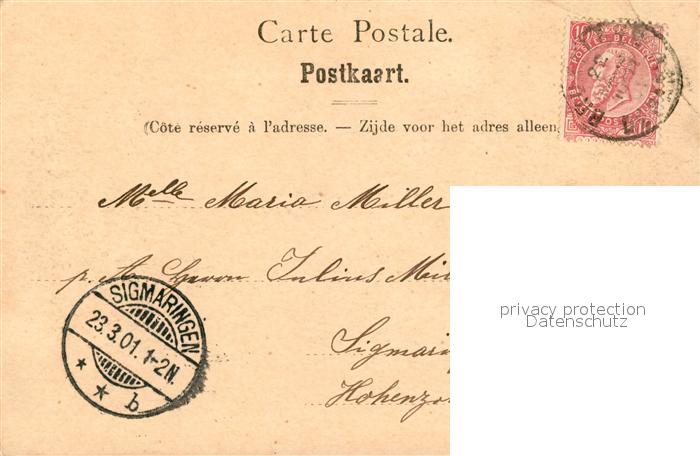 Carte Postale.
Postkaart.
(Côte réservé à l'adresse. — Zijde voor het adres alleen
10 POSTES BELGIQUE
22
1
Melle Maria Miller
p. A. Herrn Julius Mil
Sigmarin
Hohenzo
SIGMARINGEN
23.3.01. 1-2N.
* * b
privacy protection
Datenschutz